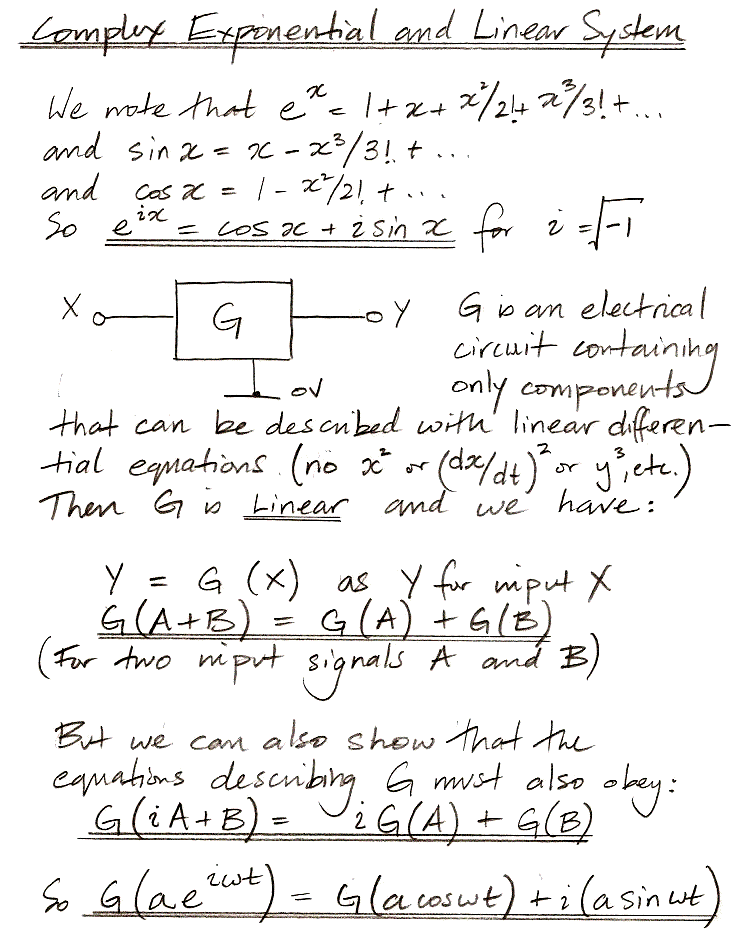 Complex Exponential and Linear System
We note that e^x = 1 + x + x²/2! + x³/3! + ...
and sin x = x - x³/3! + ...
and cos x = 1 - x²/2! + ...
So e^ix = cos x + i sin x for i = √-1
X G Y G is an electrical
circuit containing
0V only components
that can be described with linear differen-
tial equations (no x² or (dx/dt)² or y³, etc.)
Then G is Linear and we have:
Y = G (X) as Y for input X
G(A+B) = G(A) + G(B)
(For two input signals A and B)
But we can also show that the
equations describing G must also obey:
G(iA+B) = iG(A) + G(B)
So G(ae^iωt) = G(a cos ωt) + i(a sin ωt)